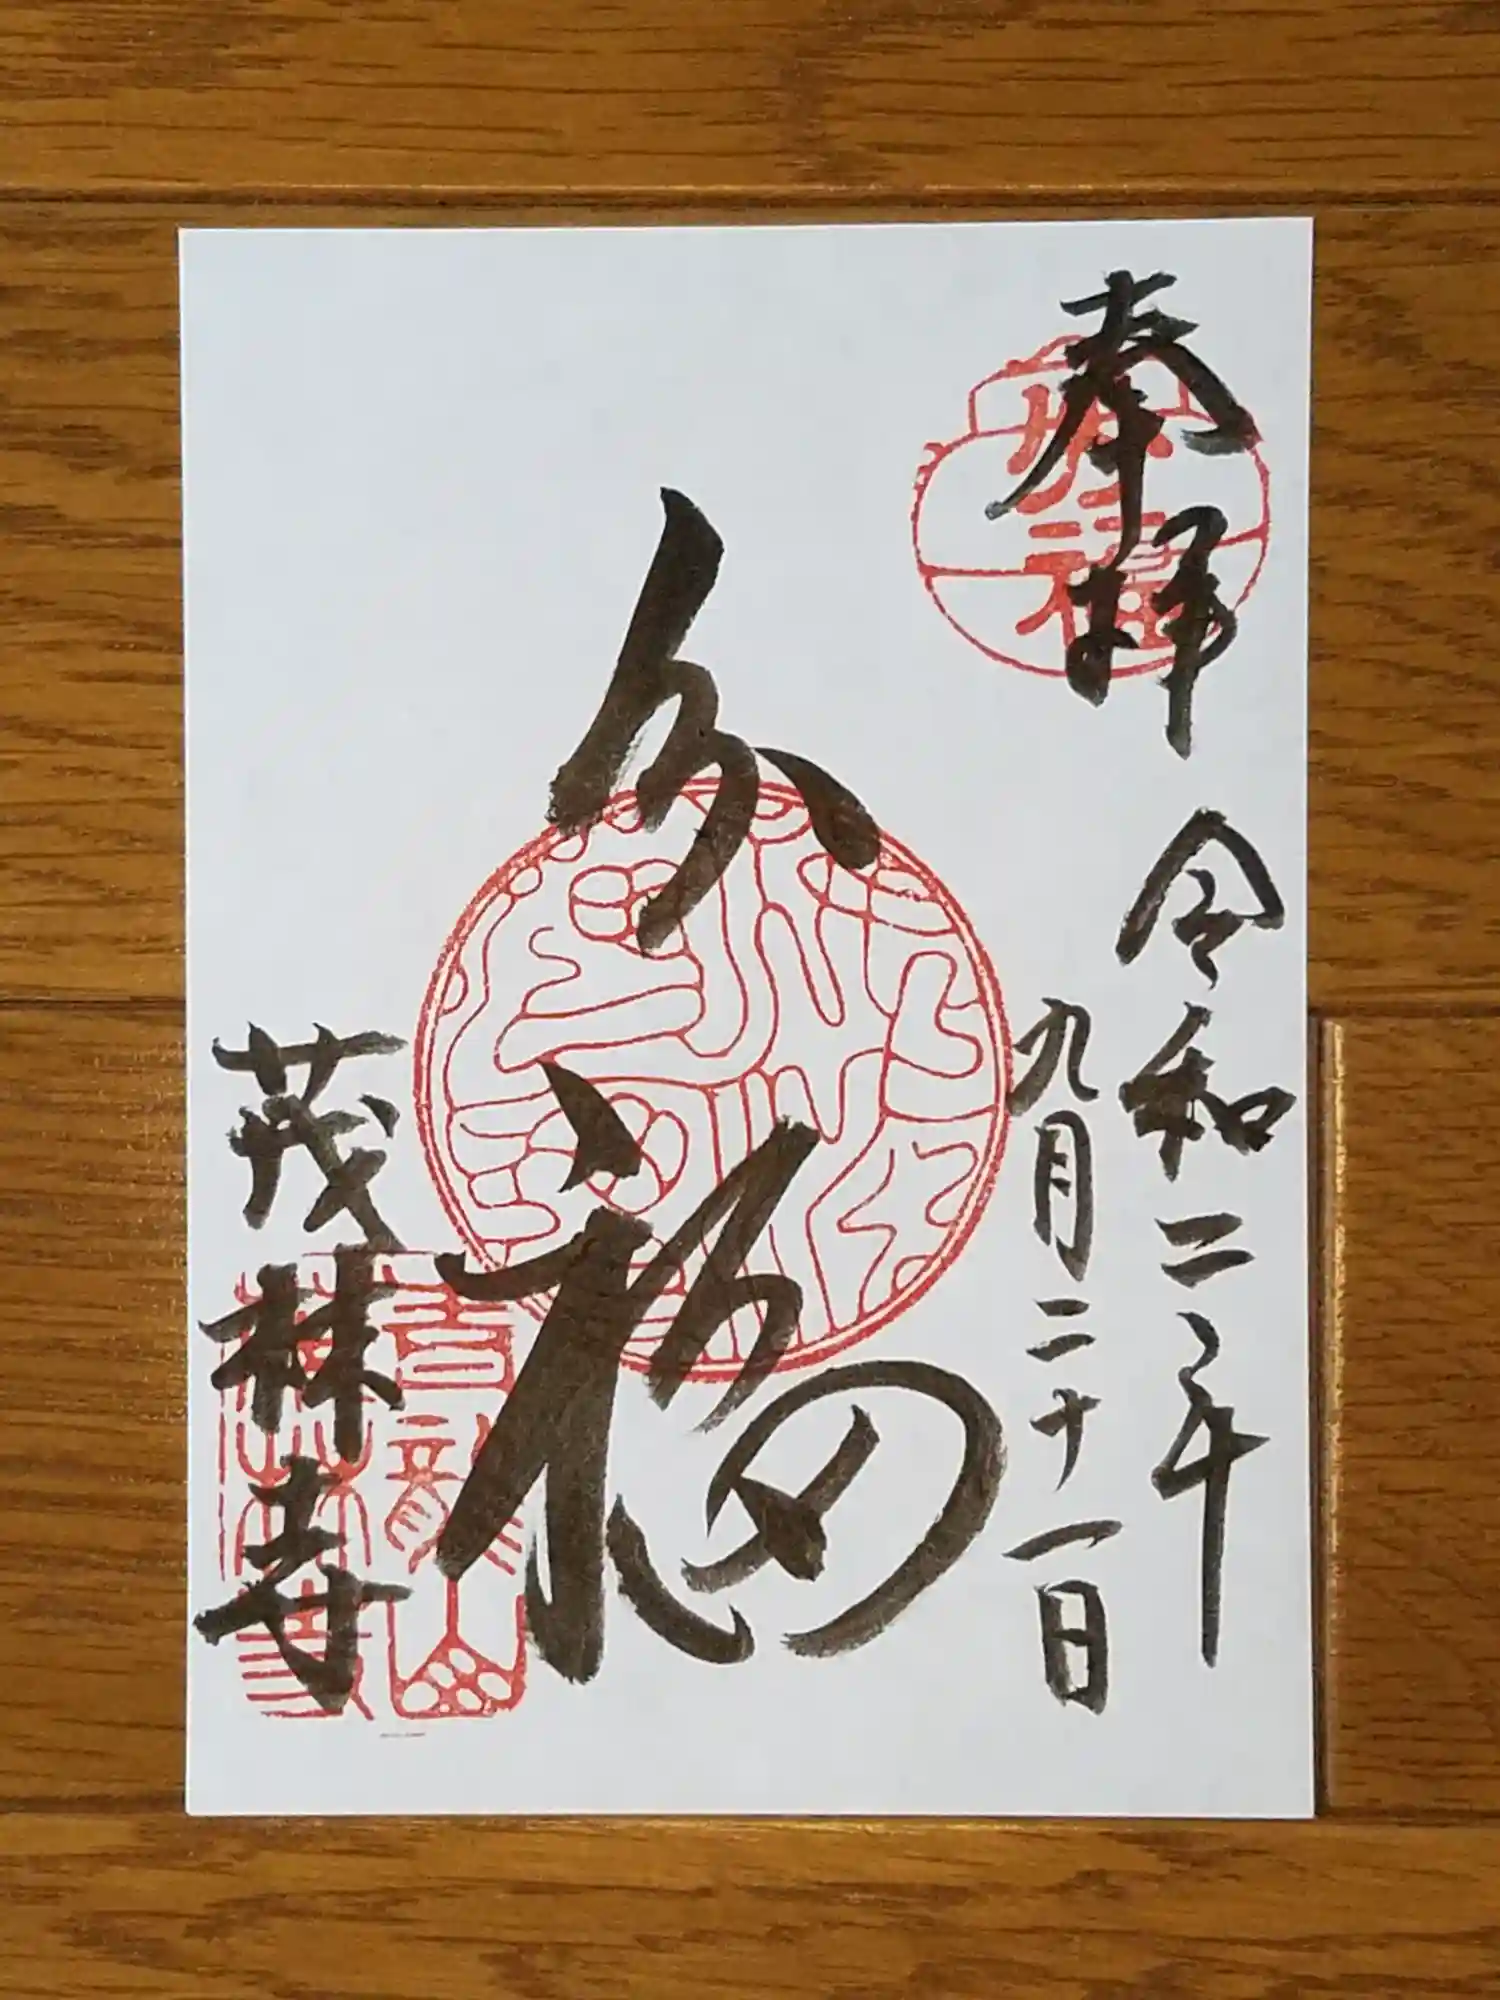 奉拝
令和二年
九月二十一日
分福
茂林寺